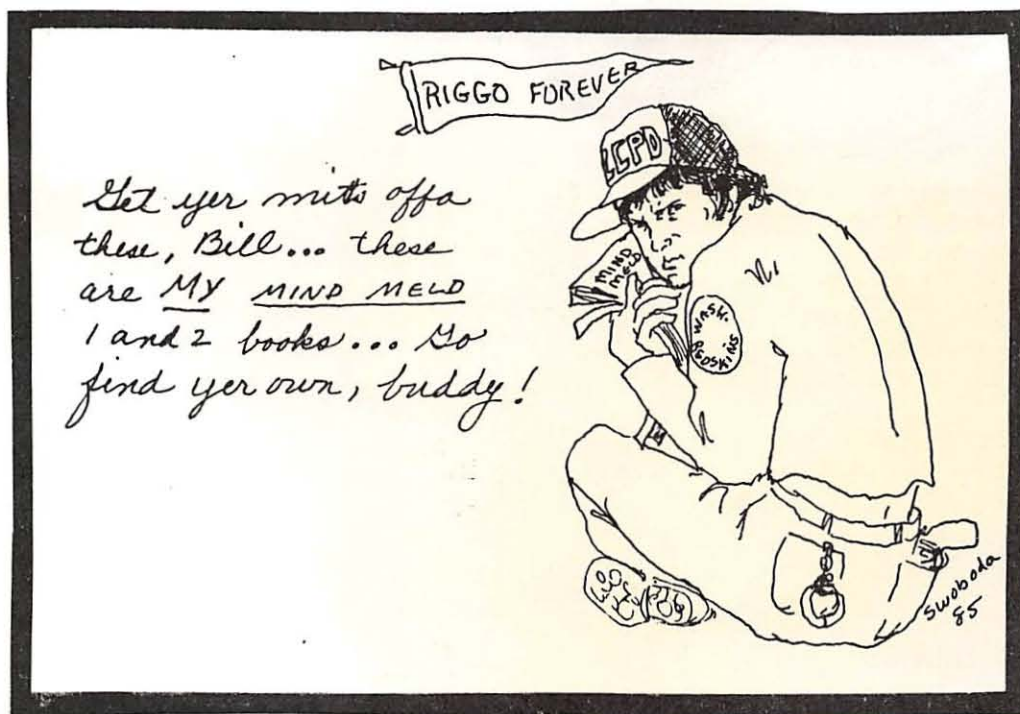 RIGGO FOREVER
Get yer mits offa
these, Bill... these
are MY MIND MELD
1 and 2 books... Go
find yer own, buddy!
LCPD
MIND
MELD
WASH.
REDSKINS
Swoboda
85